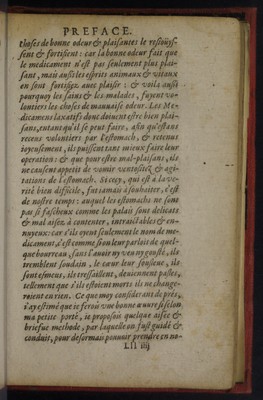 PREFACE.
choses de bonne odeur & plaisantes le resiouys-
sent & fortifient: car la bonne odeur fait que
le medicament n'est pas seulement plus plai-
sant, mais aussi les esprits animaux & vitaux
en sont fortifiez auec plaisir: & voila aussi
pourquoy les sains & les malades, fuyent vo-
lontiers les choses de mauuaise odeur. Les Me-
dicamens laxatifs donc doiuent estre bien plai-
sans, autant qu'il se peut faire, afin qu'estans
receus volontiers par l'estomach, & retenus
ioyeusement, ils puissent tant mieux faire leur
operation: & que pour estre mal-plaisans, ils
ne causent appetit de vomir ventositez & agi-
tations de l'estomach. Si cecy, qui est à la ve-
rité bien difficile, fut iamais à souhaiter, c'est
de nostre temps: auquel les estomachs ne sont
pas si fascheux comme les palais sont delicats
& mal aisez à contenter, intraictables & en-
nuyeux: car s'ils oyent seulement le nom de me-
dicament, c'est comme si on leur parloit de quel-
que bourreau, sans l'auoir ny veu ny gousté, ils
tremblent soudain, le cœur leur souleue, ils
sont esmeus, ils tressaillent, deuiennent pasles,
tellement que s'ils estoient morts ils ne change-
roient en rien. Ce que moy considerant de pres,
i'ay estimé que ie feroy vne bonne œuure si selon
ma petite porté, ie proposois quelque aisée &
briefue methode, par laquelle on fust guidé &
conduit, pour desormais pouuoir prendre en no-
Lll iiij